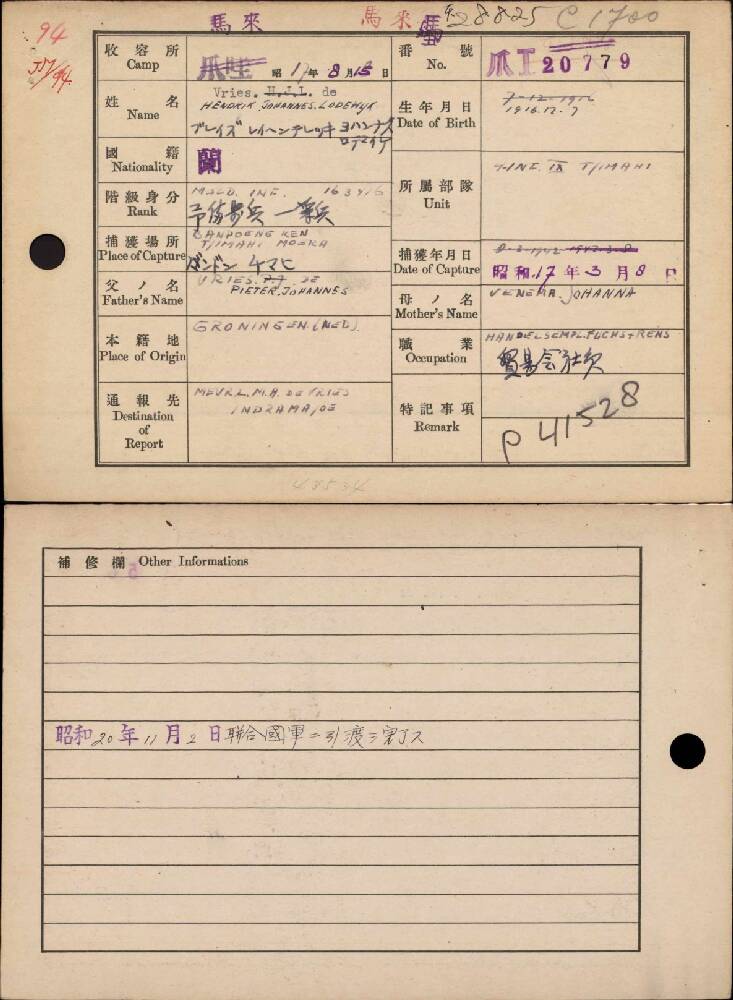 馬來 馬來
94
C 1700
收容所 Camp
昭 17年 8月 15日
番號 No.
爪I 20779
姓名 Name
Vries. H.J.L. de
HENDRIK JOHANNES. LODEWIJK
生年月日 Date of Birth
7-12-1916
1916.12.7
國籍 Nationality
蘭
所屬部隊 Unit
階級身分 Rank
捕獲場所 Place of Capture
BANDOENG KEN
TJIMAHI MOEKA
バンドン チマヒ
捕獲年月日 Date of Capture
8-3-1942 1942-3-8
昭和 17年 3月 8日
父ノ名 Father's Name
VRIES. P.J. DE
PIETER. JOHANNES
母ノ名 Mother's Name
VENEMA. JOHANNA
本籍地 Place of Origin
GRONINGEN. (NED).
職業 Occupation
HANDELSEMPL. FUCHS + RENS
通報先 Destination of Report
MEVR. L. M. A. DE VRIES
INDRAMAJOE
特記事項 Remark
P 41528
補修欄 Other Informations
昭和20年11月2日聯合國軍ニ引渡